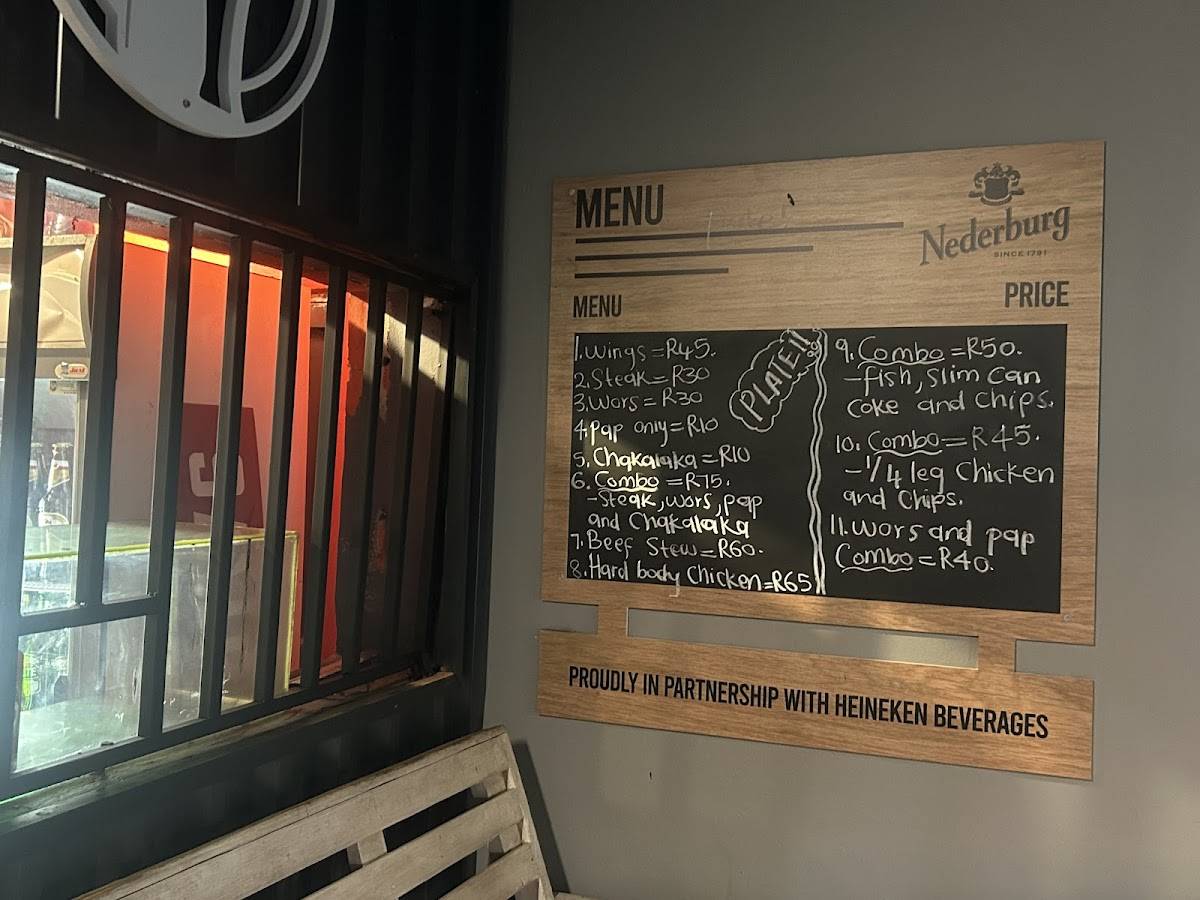 MENU
Nederburg
SINCE 1791
MENU
PRICE
1. Wings = R45.
2. Steak = R30
3. Wors = R30
4. Pap only = R10
5. Chakalaka = R10
6. Combo = R75.
- Steak, wors, pap
and Chakalaka
7. Beef Stew = R60.
8. Hard body Chicken = R65
9. Combo = R50.
- fish, slim can
coke and chips.
10. Combo = R45.
- 1/4 leg Chicken
and Chips.
11. Wors and pap
Combo = R40.
PROUDLY IN PARTNERSHIP WITH HEINEKEN BEVERAGES